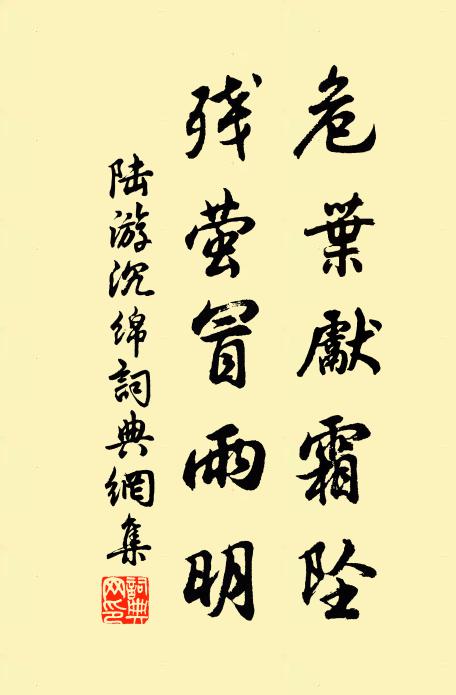 危葉獻霜坠
残萤冒雨明
陆游沉绵詞典網集
詞典
网印